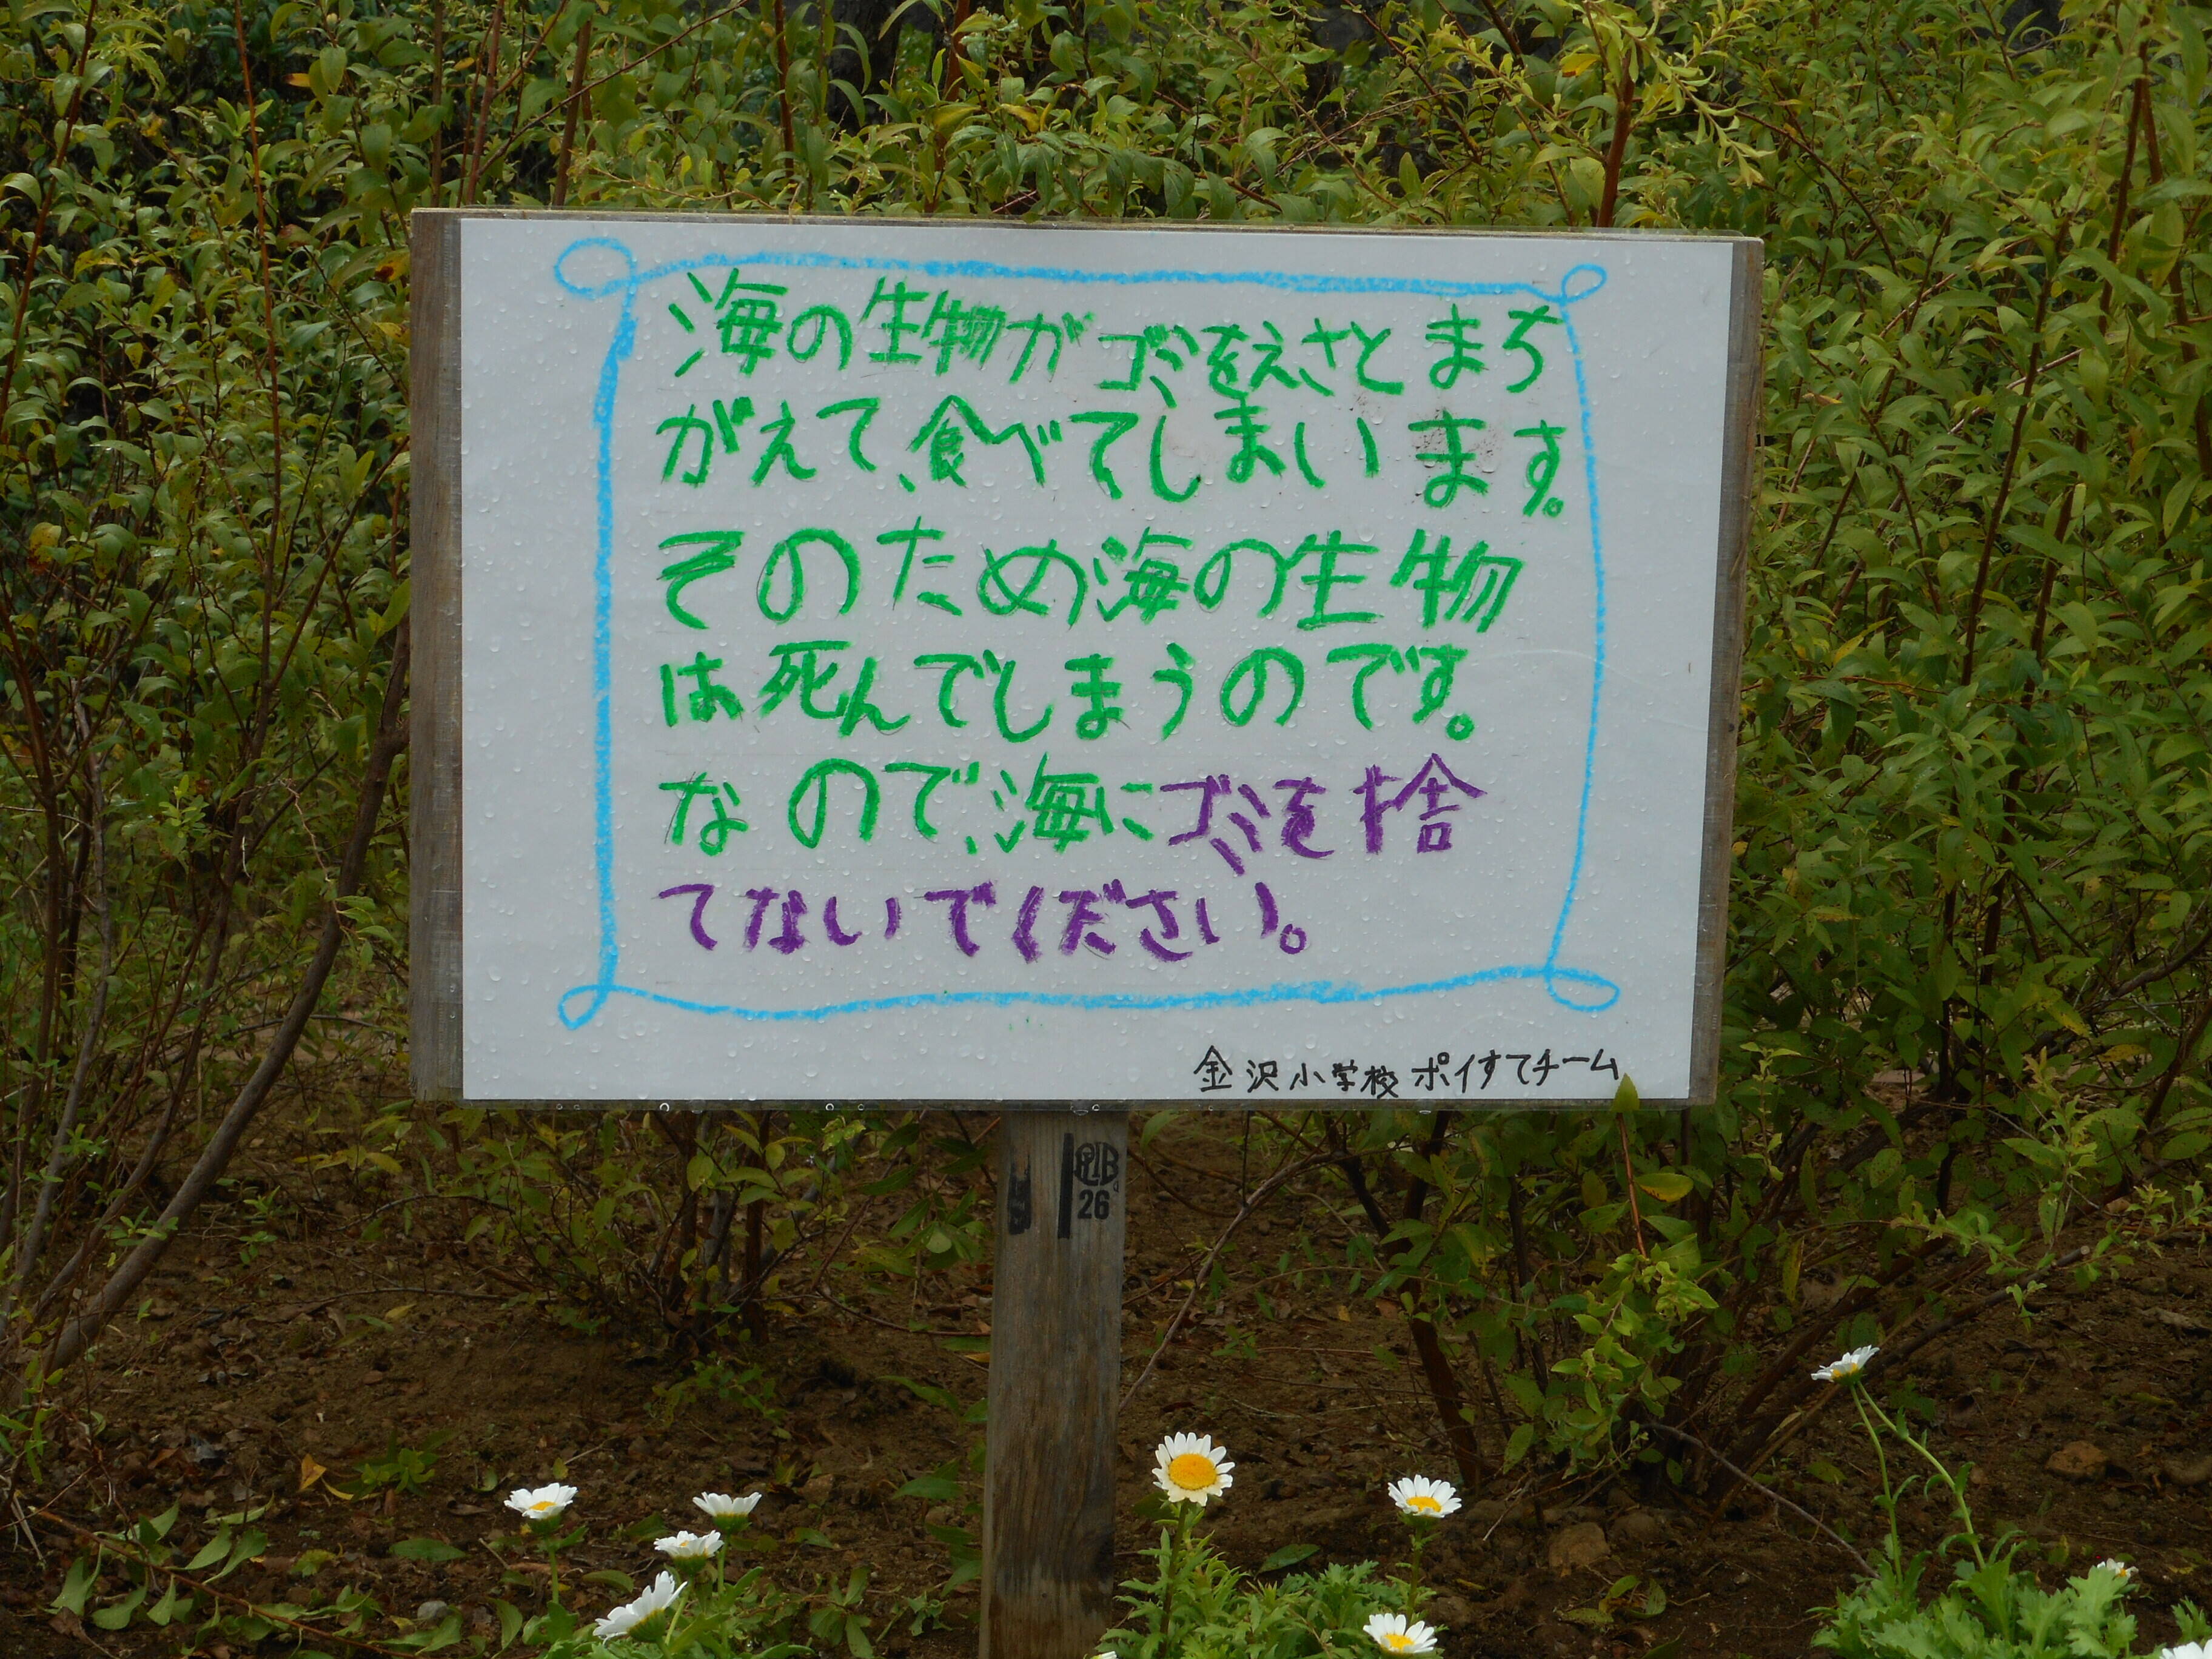 海の生物がゴミをえさとまち
がえて、食べてしまいます。
そのため海の生物
は死んでしまうのです。
なので、海にゴミを捨
てないでください。
金沢小学校ポイすてチーム
26